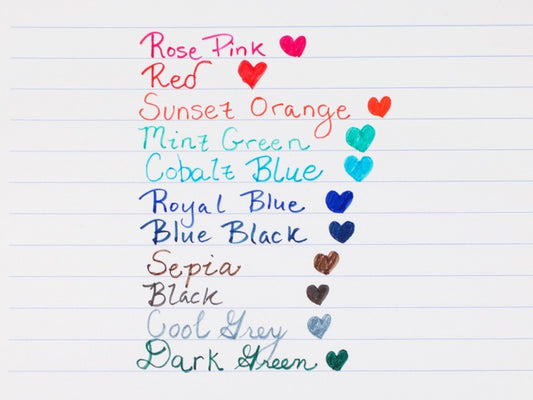 Rose Pink
Red
Sunset Orange
Mint Green
Cobalt Blue
Royal Blue
Blue Black
Sepia
Black
Cool Grey
Dark Green